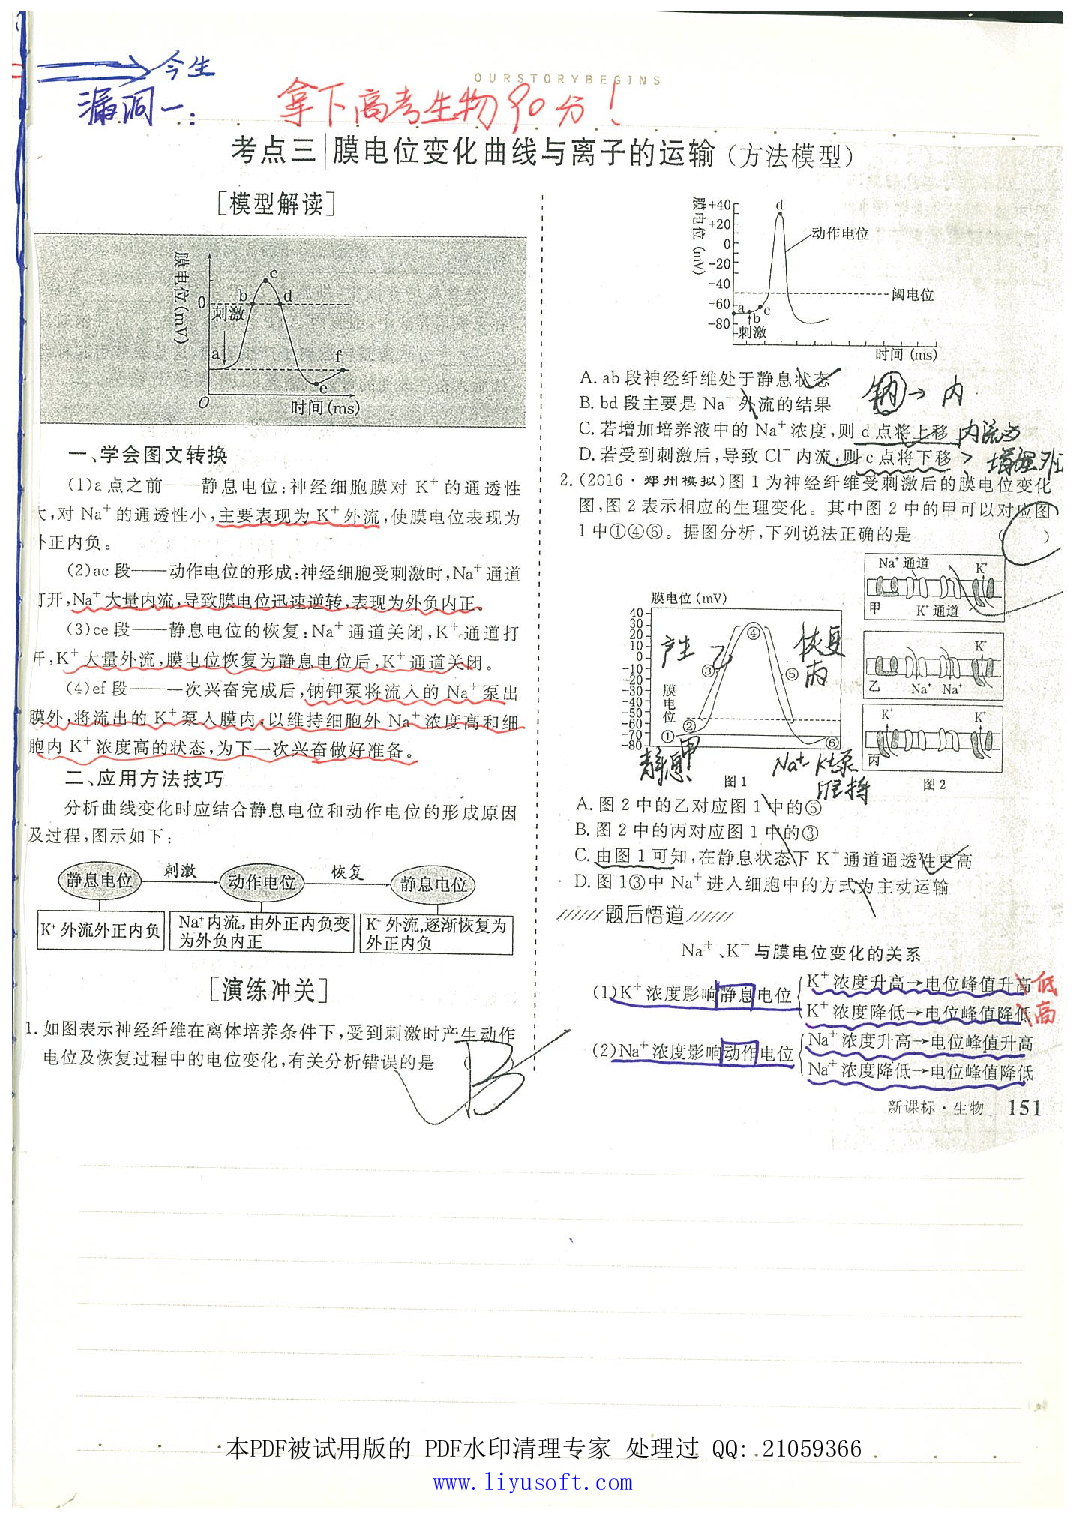 今生
OURSTORYBEGINS
漏洞一:
拿下高考生物90分!
考点三|膜电位变化曲线与离子的运输(方法模型)
[模型解读]
膜电位(mV)
0
刺激
a
b
c
d
e
f
O
时间(ms)
一、学会图文转换
(1)a点之前——静息电位:神经细胞膜对K⁺的通透性
大,对Na⁺的通透性小,主要表现为K⁺外流,使膜电位表现为
外正内负。
(2)ac段——动作电位的形成:神经细胞受刺激时,Na⁺通道
打开,Na⁺大量内流,导致膜电位迅速逆转,表现为外负内正。
(3)ce段——静息电位的恢复:Na⁺通道关闭,K⁺通道打
开,K⁺大量外流,膜电位恢复为静息电位后,K⁺通道关闭。
(4)ef段——一次兴奋完成后,钠钾泵将流入的Na⁺泵出
膜外,将流出的K⁺泵入膜内,以维持细胞外Na⁺浓度高和细
胞内K⁺浓度高的状态,为下一次兴奋做好准备。
二、应用方法技巧
分析曲线变化时应结合静息电位和动作电位的形成原因
及过程,图示如下:
静息电位 刺激 动作电位 恢复 静息电位
K⁺外流外正内负
Na⁺内流,由外正内负变
为外负内正
K⁺外流,逐渐恢复为
外正内负
[演练冲关]
1.如图表示神经纤维在离体培养条件下,受到刺激时产生动作
电位及恢复过程中的电位变化,有关分析错误的是
B
膜电位(mV)
+40
+20
0
-20
-40
-60
-80
d
动作电位
阈电位
a
b
c
刺激
时间(ms)
A.ab段神经纤维处于静息状态
B.bd段主要是Na⁺外流的结果
钠→内
C.若增加培养液中的Na⁺浓度,则d点将上移
D.若受到刺激后,导致Cl⁻内流,则c点将下移
2.(2016·郑州模拟)图1为神经纤维受刺激后的膜电位变化
图,图2表示相应的生理变化。其中图2中的甲可以对应图
1中①④⑥。据图分析,下列说法正确的是( )
C
膜电位(mV)
40
30
20
10
0
-10
-20
-30
-40
-50
-60
-70
-80
膜电位
①
②
③
④
⑤
⑥
产生 乙
恢复
丙
静息 甲
Na⁺ K⁺泵
图1
Na⁺通道 K⁺
甲 K⁺通道
K⁺
乙 Na⁺ Na⁺
K⁺ K⁺
丙
图2
A.图2中的乙对应图1中的⑤
B.图2中的丙对应图1中的③
C.由图1可知,在静息状态下K⁺通道通透性更高
D.图1③中Na⁺进入细胞中的方式为主动运输
题后悟道
Na⁺、K⁺与膜电位变化的关系
(1)K⁺浓度影响静息电位
K⁺浓度升高→电位峰值升高
低
K⁺浓度降低→电位峰值降低
高
(2)Na⁺浓度影响动作电位
Na⁺浓度升高→电位峰值升高
Na⁺浓度降低→电位峰值降低
新课标·生物 151
本PDF被试用版的 PDF水印清理专家 处理过 QQ:21059366
www.liyusoft.com